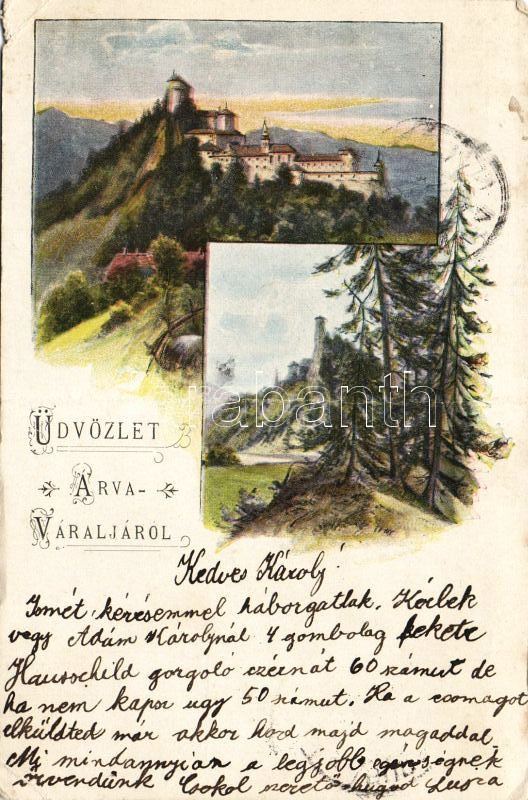 ÜDVÖZLET
ÁRVA-
VÁRALJÁRÓL
Kedves Károly!
Ismét kérésemmel háborgatlak. Kérlek
vegy Adám Károlynál 4 gombolag fekete
Hausschild gorgoló czérnát 60 számut de
ha nem kapor ugy 50 számut. Ha a csomagot
elküldted már akkor hord majd magaddal
Mi mindannyian a legjobb egészségnek
örvendünk Csokol szerető hugod Lusza
Darabanth